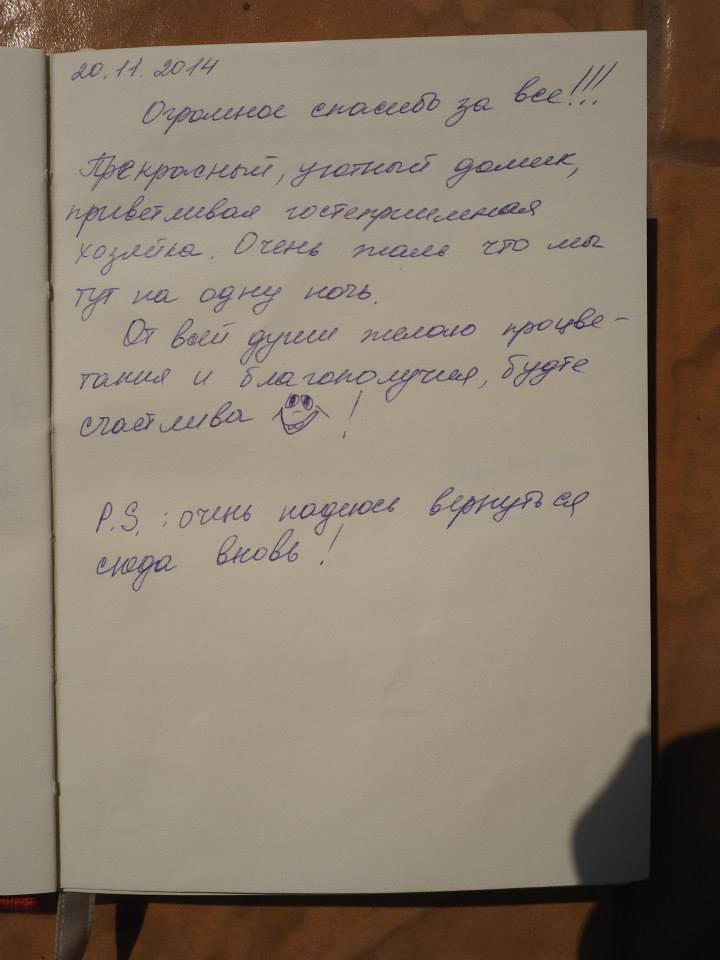 20.11.2014
Огромное спасибо за все!!!
Прекрасный, уютный домик,
приветливая гостеприимная
хозяйка. Очень жаль что мы
тут на одну ночь.
От всей души желаю процве-
тания и благополучия, будте
счастлива !
P.S. : очень надеюсь вернуться
сюда вновь!